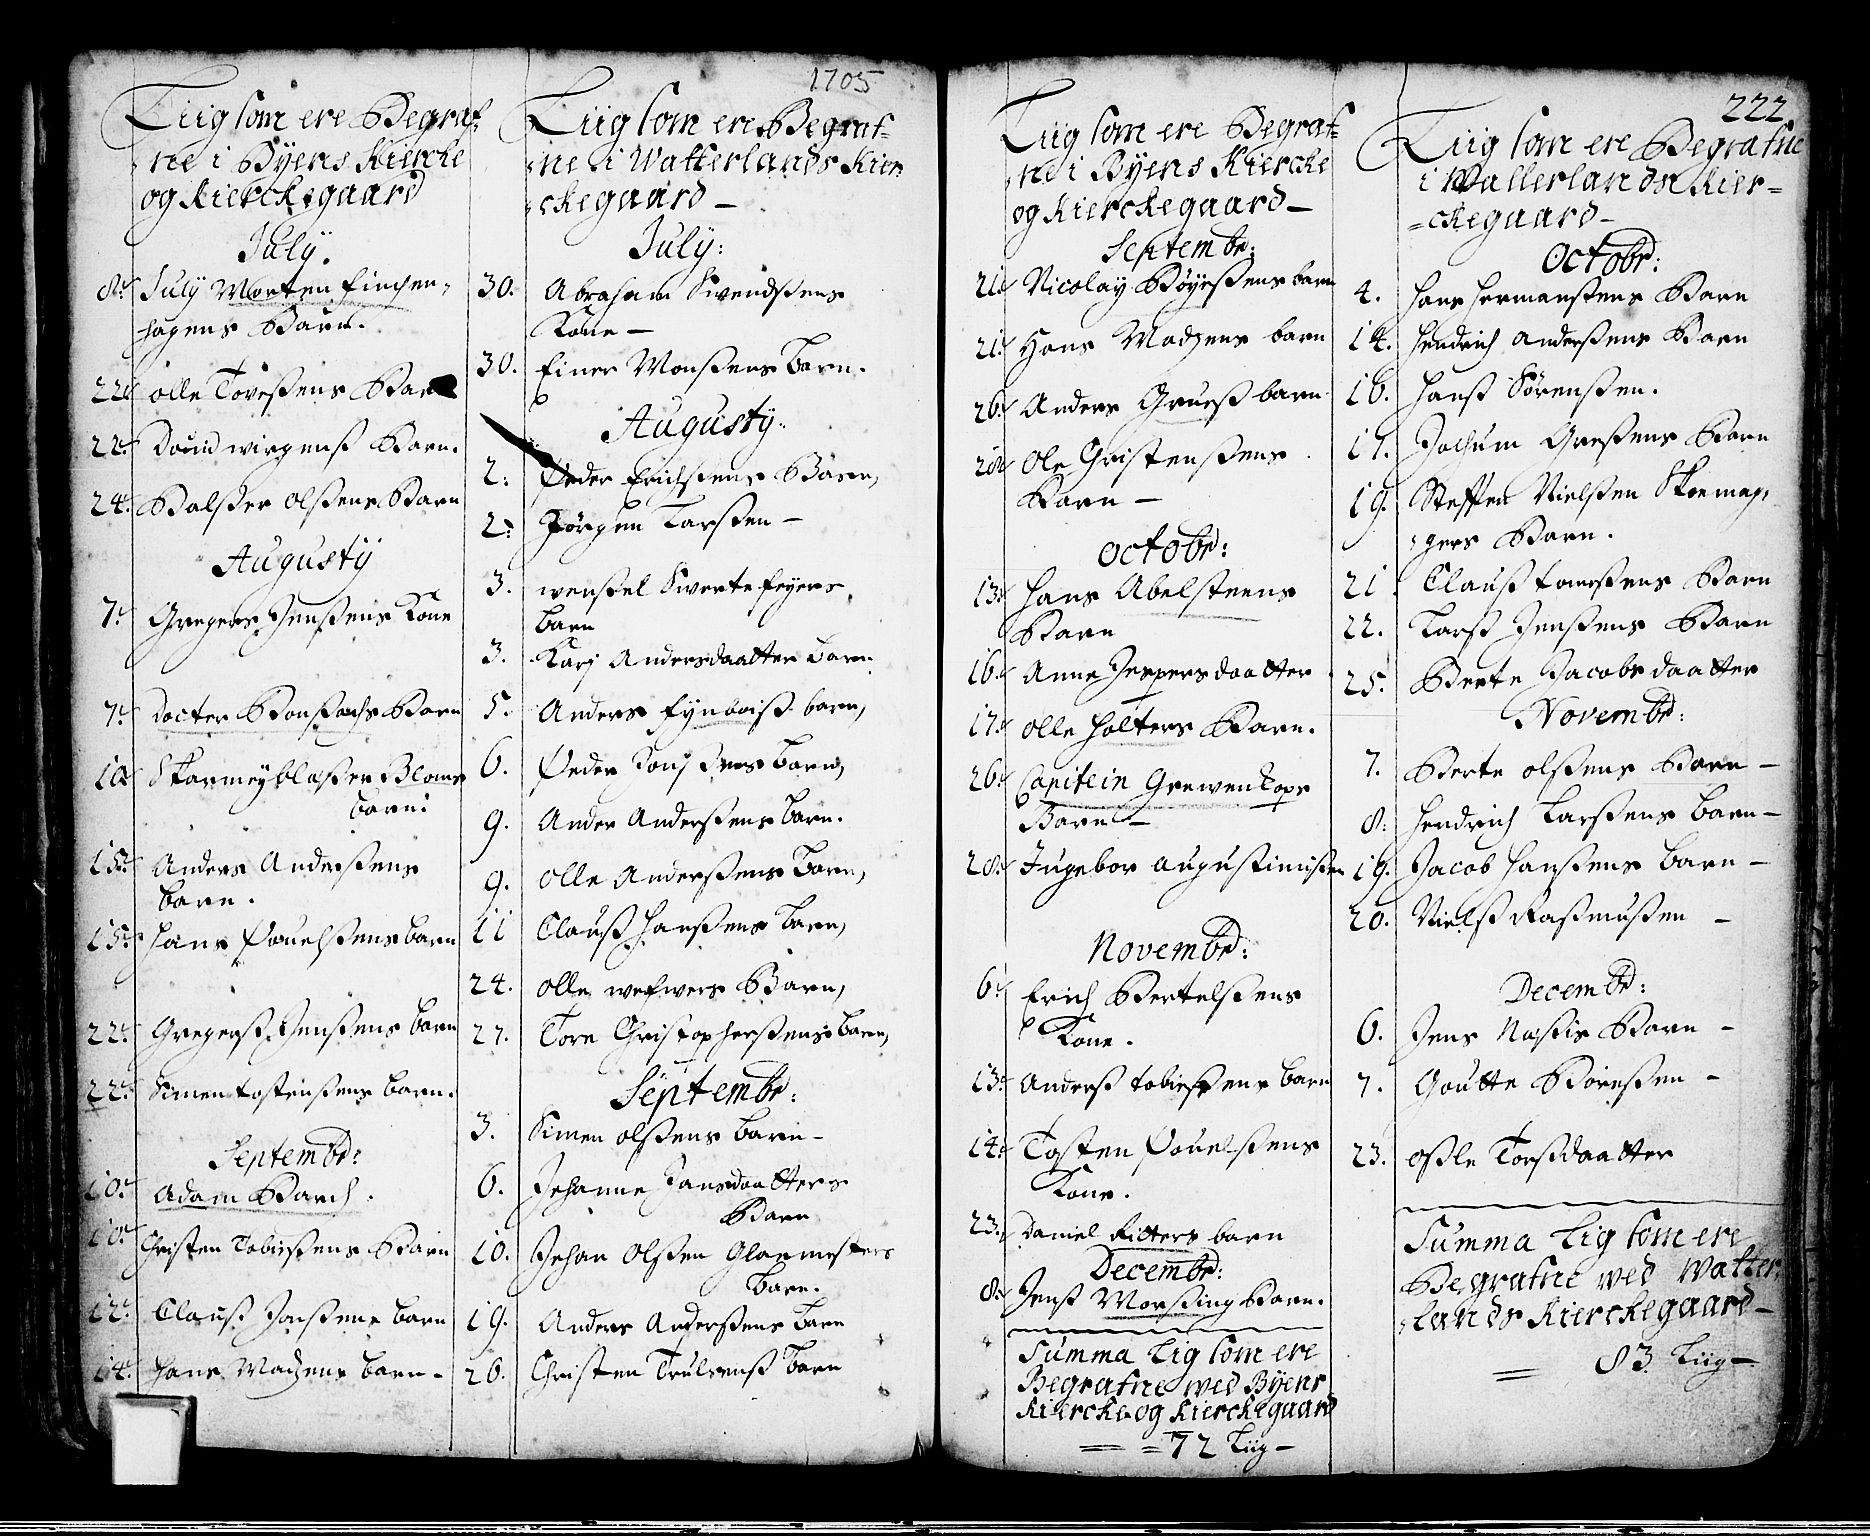 1705
Liig som ere Begraf-
ne i Byens Kiercke
og Kierckegaard
July.
8. July Morten finchen-
hagens Barn.
22. olle Tovessens Barn
22. David wirgenss Barn.
24. Balsser olssens Barn
Augusty
7. Gregers Jenssens Kone
7. Docter Bonssachs Barn
10. Bloms
barn:
15. Anders Anderssens
barn.
15. hans Pouelssens barn
22. Gregerss Jenssens barn
22. Simen tostenssens barn.
Septembr:
10. Adam Barch.
10. Christen Tobiessens Barn
12. Clauss Jonssens barn
14. hans Madzens barn-
Liig som ere Begraf-
ne i Watterlands Kier
ckegaard-
July:
30. Abraham Swendssens
Kone-
30. Einer Monssens barn.
Augusty.
2. Peder Erichssens Barn,
2. Jörgen Larssen-
3. wenssel Swertefeyers
barn
3. Karj Andersdaatter barn.
5. Anders fynboiss barn,
6. Peder barn,
9. Ander Anderssens barn.
9. Olle Anderssens barn,
11 Clauss hanssens barn,
24. olle wefwers Barn,
27. Tore Christopherssens barn,
Septembr:
3. Simen olssens barn-
6. Johanne Jansdaatters
Barn
10. Johan Olssen Glarmesters
barn.
19. Anders Anderssens barn
26. Christen Trulssenss barn
222
Liig som ere Begraf-
ne i Byens Kiercke
og Kierckegaard-
Septembr:
21. Nicolay Böyessens barn
21. Hans Madzens barn
26. Anders Gruess barn
28. Ole Christenssens
Barn-
Octobr:
13. hans Abelsteens
Barn
16. Anne Jespersdaatter
17. olle holters Barn.
26. Capitein Grewenkops
Barn-
28. Ingebor augustinissen
Novembr:
6. Erich Bertelssens
Kone.
13. Anderss tobiessens barn
14. Tosten Pouelssens
Kone.
23. Daniel Ritters barn
Decembr:
8. Jenss Morssing Barn.
Summa Lig som ere
Begrafne wed Byens
Kiercke og Kierckegaard
= =72 Liig-
Liig som ere Begrafne
i Wallerlands Kier=
=ckegaard-
Octobr:
4. hans hermanssens Barn
14. hendrich anderssens Barn
16. hanss Sörenssen.
17. Jochum Gressens Barn
19. Steffen Nielssen Skoemag,
gers Barn.
21. Clauss tomessens Barn
22. Larss Jenssens Barn
25. Berte Jacobsdaatter
Novembr:
7. Berte olssens Barn-
8: hendrich Larssens barn-
19. Jacob hanssens barn-
20. Nielss Rassmussen -
Decembr:
6. Jens Nassis Barn-
7. Goutte Boressen-
23. ossle Torssdaatter
Summa Lig som ere
Begrafne wed Watter,
lands Kierckegaard-
= 83 Liig-